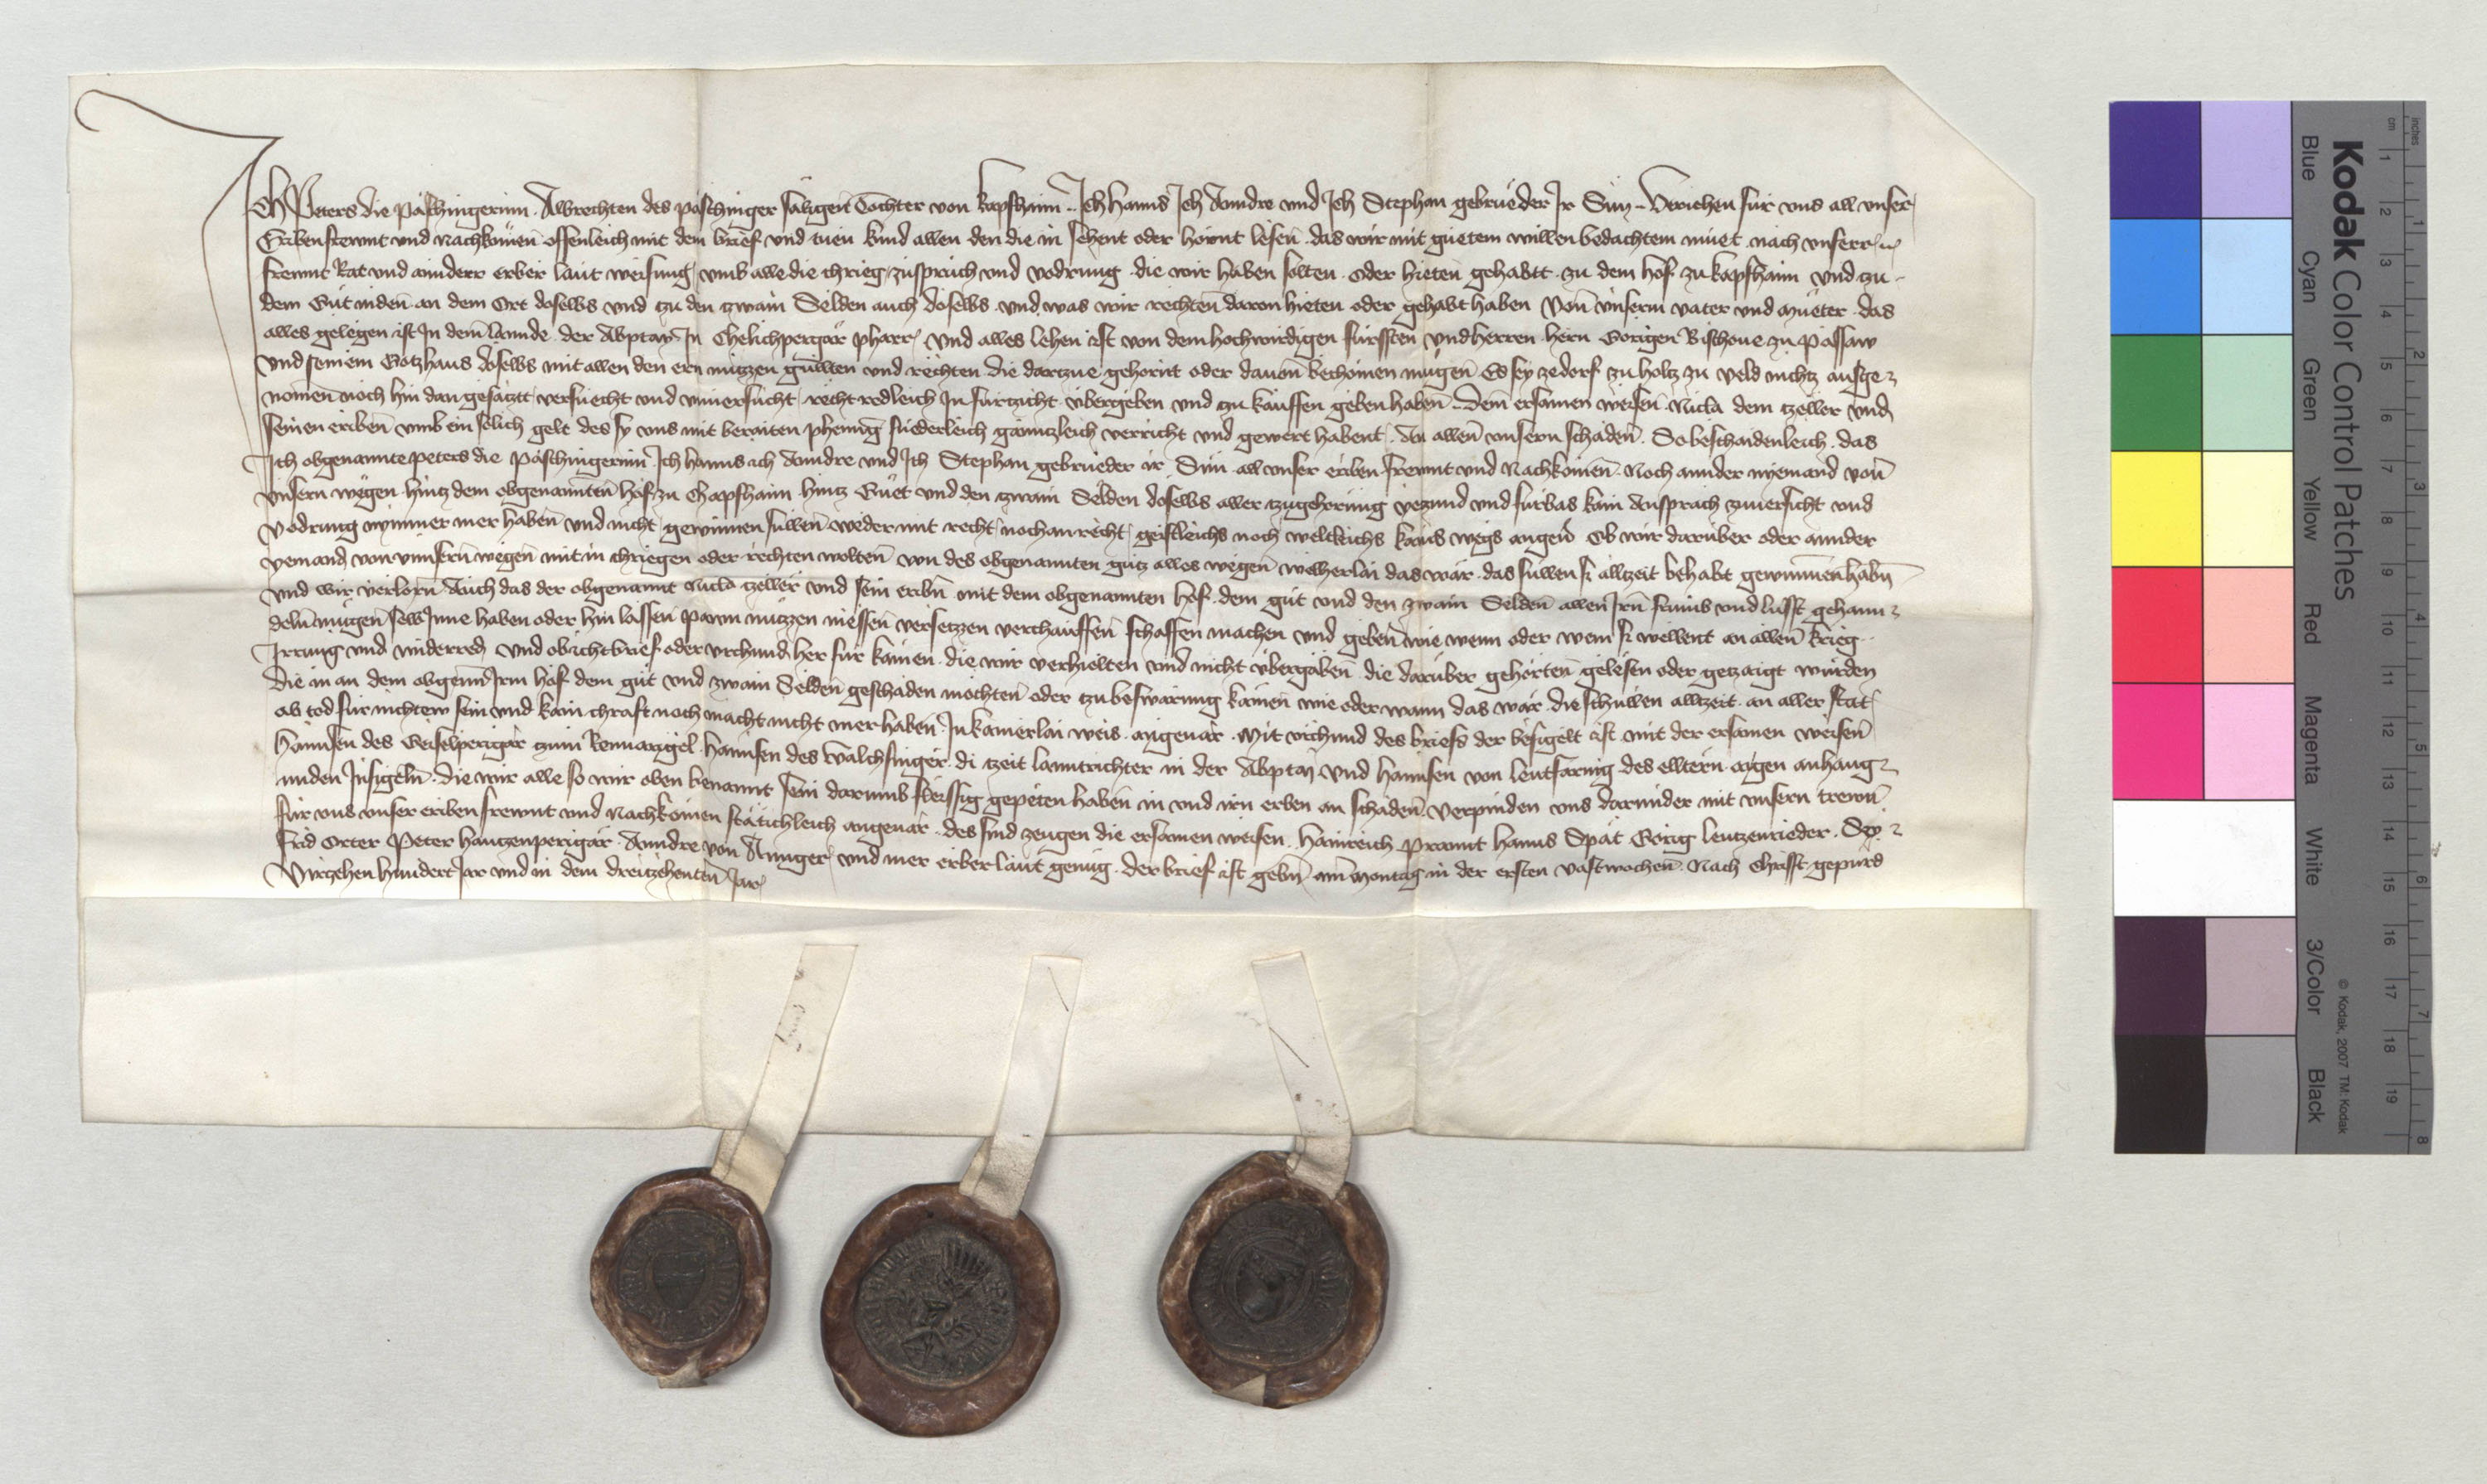 Ich Peters die Päschingerinn Albrechten des päschinger säligen Tochter von kapfhaim Ich Hanns Ich Anndre und Ich Stephan gebrüeder Ir Sün Veriehen für vns all vnser
Eriben frewnt vnd nachkömen offenleich mit dem brief vnd tuen kund allen den die in sehent oder hörnt lesen das wir mit guetem willen bedachtem müet nach vnserr
frewnt Rat vnd annderr erber läut weisung vmb alle die chrieg zuspruch vnd vodrung die wir haben solten oder hieten gehabtt zu dem hof zu kapfhaim vnd zu
dem Güt niden an dem Ort doselbs vnd tzu den zwain Selden auch doselbs vnd was wir rechten daran hieten oder gehabt haben Von vnserm vater vnd müeter das
alles gelegen ist In dem lannde der Abptay In Chelichpergär pharr vnd alles lehen ist von dem hochwirdigen fürssten vnd herren hern Görigen Bischoue zu Passaw
vnd seinem Gotzhaus doselbs mit allen den ern nützen gülten vnd rechten die dartzue gehörnt oder dauon bechömen mügen Es sey zedorf zu holtz zu veld nichtz ausge
nomen noch hin dan gesätzt versuecht vnd vnuersucht recht redleich In fürtzicht übergeben vnd zu kauffen geben haben Dem ersamen weisen Nicla dem tzeller vnd
seinen eriben vmb ein sölich gelt des sy vns mit beraiten phennig füederleich gänntzleich verricht vnd gewert habent An allen vnsern schaden So beschaidenleich das
Ich obgenante peters die päschingerinn Ich hanns ich Anndre vnd Ich Stephan gebrüeder ir Sün all vnser eriben frewnt vnd Nachkömen Noch annder nyemand von
vnsern wegen hintz dem obgenannten hof zu Chapfhaim hintz Güet vnd den zwain Selden doselbs aller tzugehörung yezund vnd fürbas kain Ansprach zuuersicht vnd
Vodrung nymmer mer haben vnd nicht gewinnen süllen weder mit recht noch an recht geistleichs noch weltleichs kains wegs angeuer Ob wir darüber oder annder
yemand von vnnsern wegen mit in chriegen oder rechten wolten von des obgenannten gutz alles wegen welherlai das wär das süllen si alltzeit behabt gewunnen habn
vnd wir verlorn Auch das der obgenannt Nicla tzeller vnd sein eribn mit dem obgenannten hof dem güt vnd den zwain Selden allen Irn frumb vnd lusst gehann
deln mügen sew Inne haben oder hin lassen pawn nützen niessen versetzen verchauffen schaffen machen vnd geben wie wenn oder wem si wellent an allen krieg
Irrung vnd widerred vnd ob icht brief oder vrchund her für kämen die wir verhielten vnd nicht übergäben die darüber gehörten gelesen oder getzaigt würden
die in an dem obgenn Irm hof dem güt vnd zwain Selden geschaden möchten oder tzu beswärung kämen wie oder wann das wär die schüllen alltzeit an aller stat
ab tod für nichtew sein vnd kain chraft noch macht nicht mer haben In kainerlai weis angeuär Mit vrchund des briefs der besigelt ist mit der ersamen weisen
Hannsen des Geiselperigär zum Rennarzigel hannsen des Walchsinger di tzeit lanntrichter in der Abptay vnd hannsen von leutfaring des elltern aigen anhang
unden Insigeln die wir alle so wir oben benannt sein darumb fleissig gepeten haben in vnd irn erben an schaden verpinden vns darunder mit vnsern trewn
für vns vnser eriben frewnt vnd Nachkömen stätichleich angeuär des sind zeugen die ersamen weisen Hainreich prannt hanns Spät Görig leutzenrieder
Frid Orter Peter hautzenperigär Anndre von Annger vnd mer erber läut genüg der brief ist gebn am Montag in der ersten vastwochen Nach Christ gepurd
Virzehen hundert Jar vnd in dem dreitzehenten Jar
Kodak Color Control Patches
© Kodak, 2007 TM: Kodak
Blue Cyan Green Yellow Red Magenta White 3/Color Black
cm 1 2 3 4 5 6 7 8 9 10 11 12 13 14 15 16 17 18 19
inches 1 2 3 4 5 6 7 8